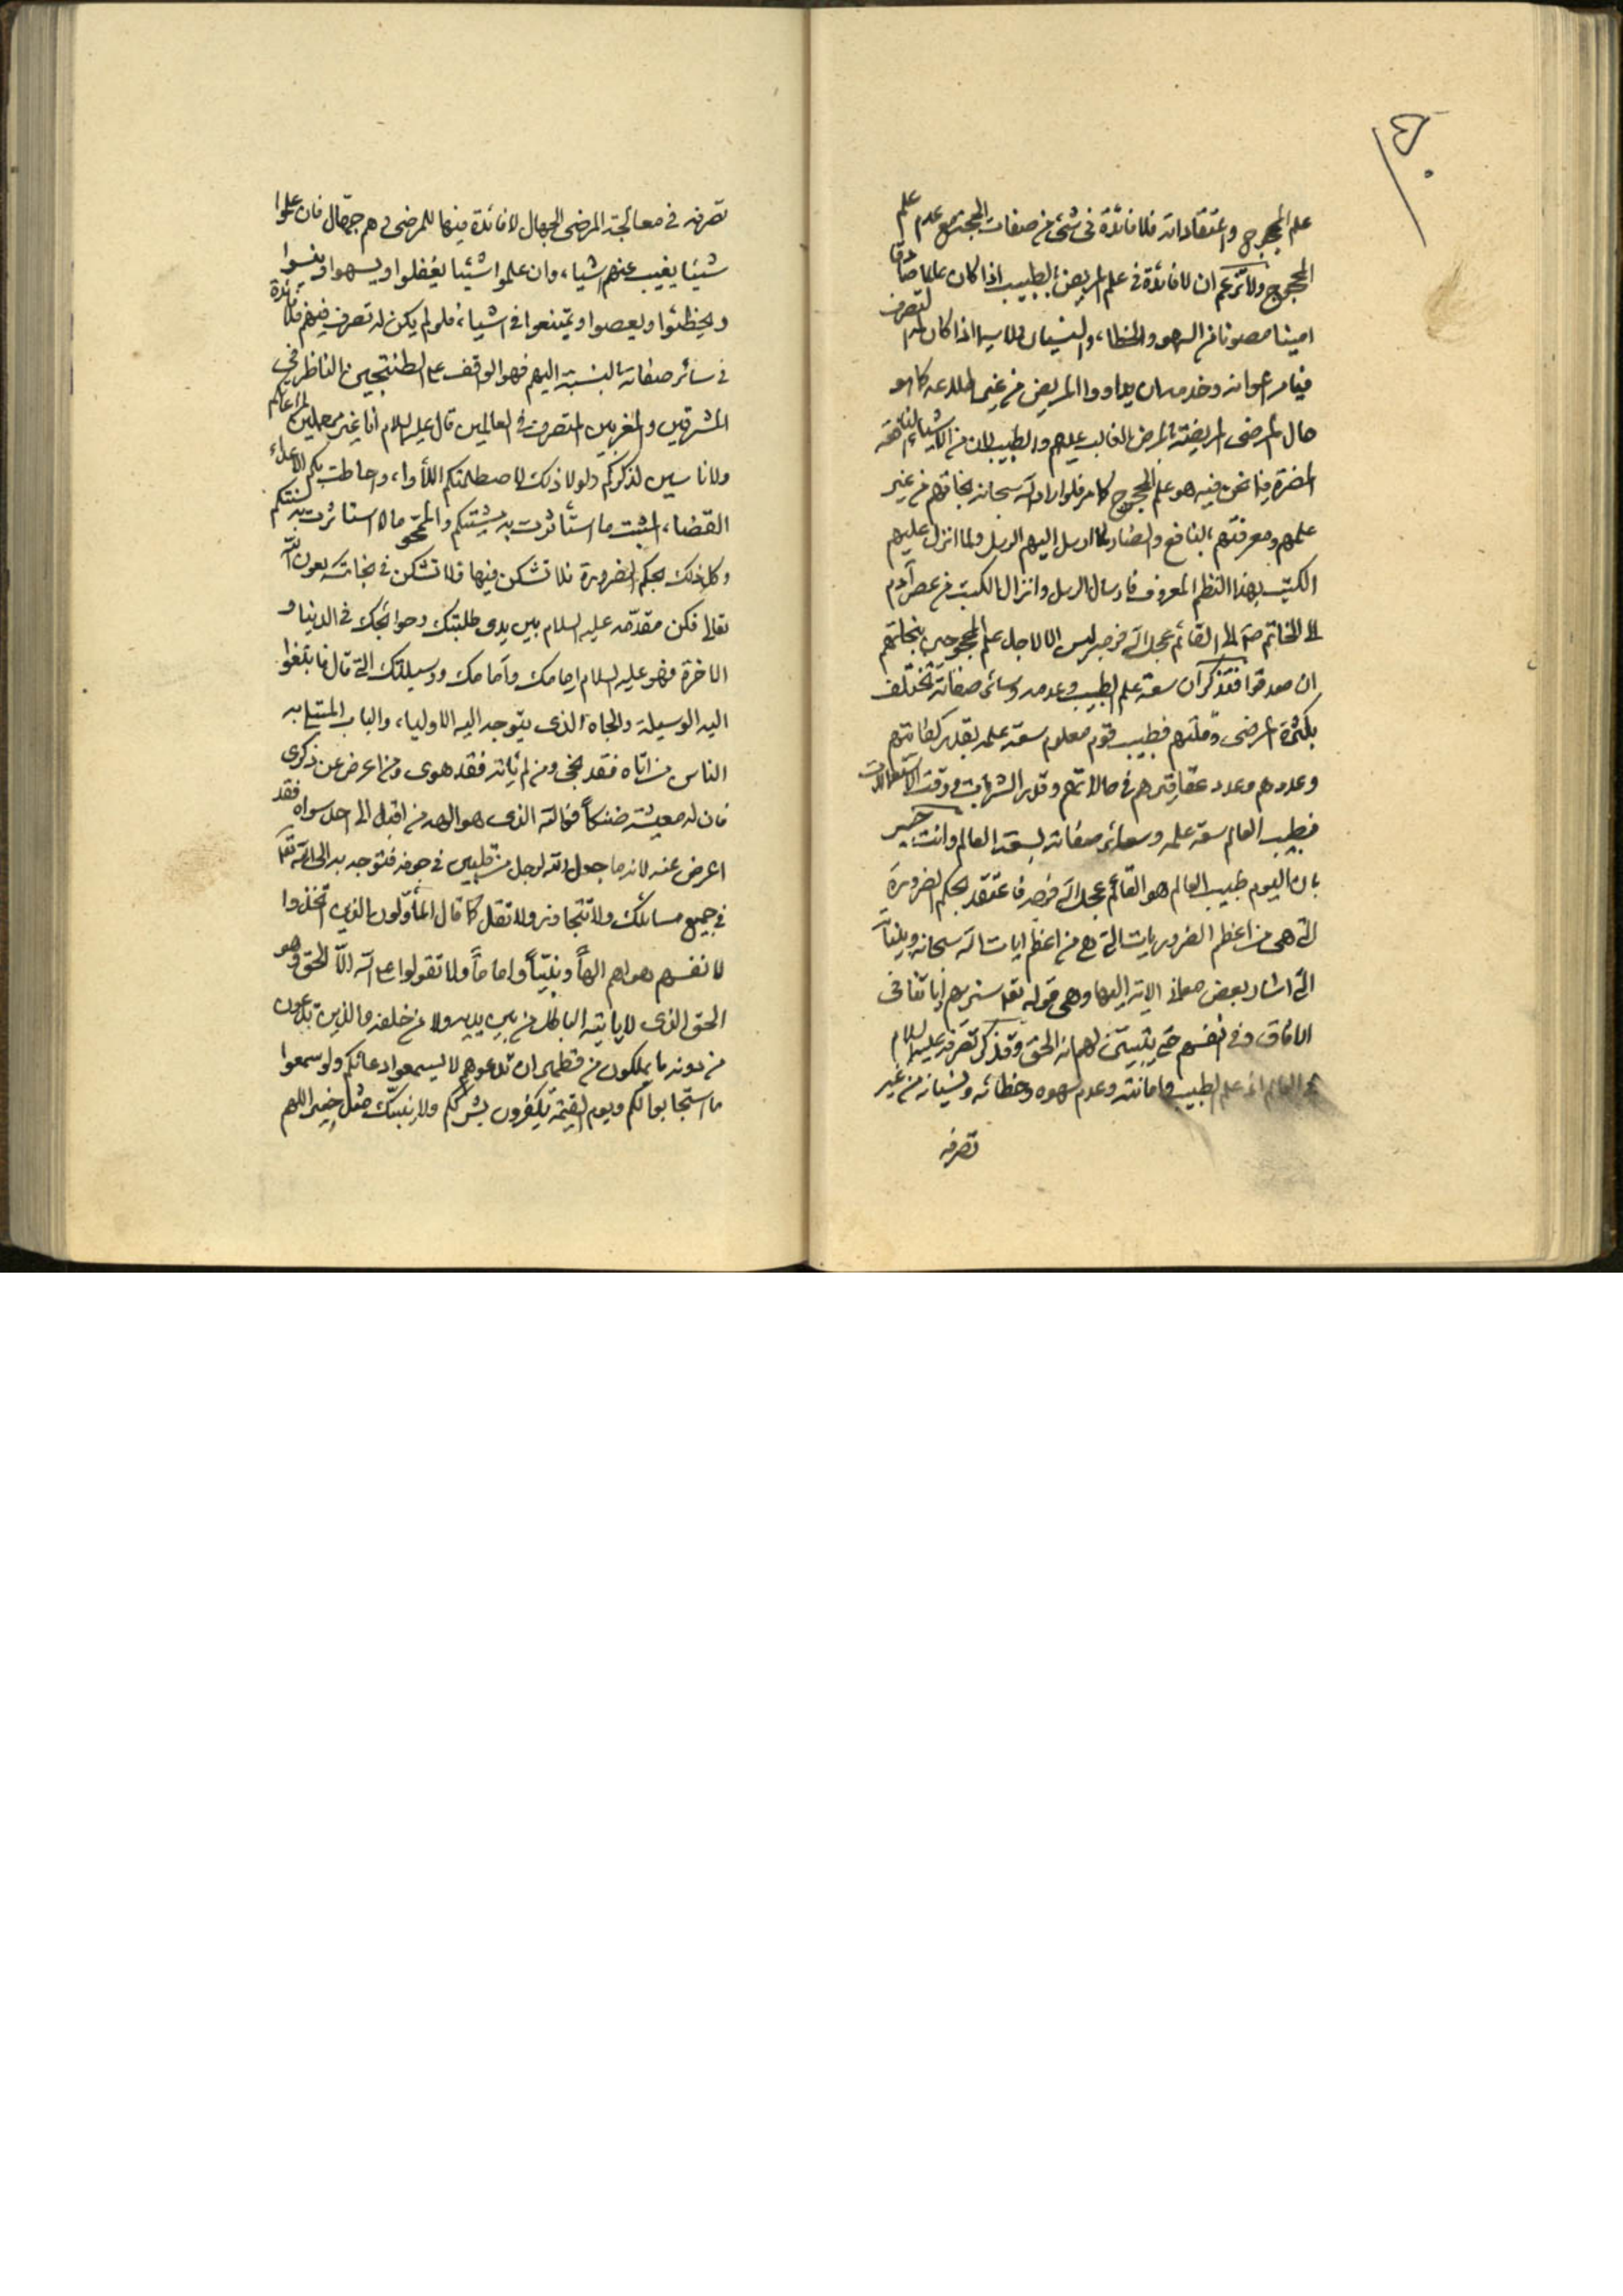 علم المحجوج واعتقاداته فلا فائدة فى شئ من صفات الحجة مع عدم علم
المحجوج ولا تزعم ان لا فائدة فى علم المريض بالطبيب اذا كان عالما صادقا
امينا مصونا من السهو والخطاء والنسيان ولا سيما اذا كان له التصرف
فيامر اعوانه وخدمه ان يداووا المريض من غير كما هو
حال المرضى المريضة بالمرض الغالب عليهم والطبيب من الاشياء النافعة
المضرة فيما نحن فيه هو علم المحجوج كما مر فلو اراد الله سبحانه نجاتهم من غير
علمهم ومعرفتهم بالنافع والضار لما ارسل اليهم الرسل ولما انزل عليهم
الكتب بهذا النظم المعروف فارسال الرسل وانزال الكتب من عصر آدم
الى الخاتم ص الى القائم عجل الله فرجه ليس الا لاجل علم المحجوجين بنجاتهم
ان صدقوا فتذكر ان سعة علم الطبيب وعدمه وسائر صفاته تختلف
بكثرة المرضى وقلتهم فطبيب قوم معلوم سعة علمه بقدر كفايتهم
وعددهم وعدد عقاقيرهم فى حالاتهم وقدر الشربات ووقت الاستعمالات
فطبيب العالم سعة علمه وسائر صفاته لسعة العالم وانت خبير
بان اليوم طبيب العالم هو القائم عجل الله فرجه فاعتقد بحكم الضرورة
التى هى من اعظم الضروريات التى هى من اعظم ايات الله سبحانه وبيناته
التى اشار بعض معانى الاية اليها وهى قوله تعالى سنريهم اياتنا فى
الافاق وفى انفسهم حتى يتبين لهم انه الحق وتذكر تصرفه عليه السلام
فى العالم اذ علم الطبيب وامانته وعدم سهوه وخطائه ونسيانه من غير
تصرفه
تصرفه فى معالجة المرضى الجهال لا فائدة فيها للمرضى وهم جهال فان علموا
شيئا يغيب عنهم اشياء وان علموا اشيئا يغفلوا ويسهوا وينسوا
ويخطئوا ويعصوا ويمتنعوا فى اشياء فلو لم يكن له تصرف فيهم فلا فائدة
فى سائر صفاته بالنسبة اليهم فهو الواقف على الطتنجين الناظر فى
المشرقين والمغربين المتصرف فى العالمين قال عليه السلام انا غير مهملين لمراعاتكم
ولا ناسين لذكركم ولولا ذلك لاصطلمتكم اللأواء واحاطت بكم الاعداء
القضاء المثبت ما استأثرت به مشيتكم والممحو ما لا استأثرت به سنتكم
وكل ذلك بحكم الضرورة فلا تشكن فيها فلا تشكن فى نجاتك بعون الله
تعالى فكن مقدمه عليه السلام بين يدى طلبتك وحوائجك فى الدنيا و
الاخرة فهو عليه السلام امامك وأمامك ووسيلتك التى قال فابتغوا
اليه الوسيلة والجاه الذى يتوجه اليه الاولياء والباب المبتلى به
الناس من اتاه فقد نجى ومن لم يأته فقد هوى ومن اعرض عن ذكرى
فان له معيشة ضنكا الذى هو الهه من اقبل الى احد سواه فقد
اعرض عنه لانه ما جعل الله لرجل من قلبين فى جوفه فتوجه به الى الله تعالى
فى جميع مسائلك ولا تتجاوز ولا تقل كما قال المأولون الذين اتخذوا
لانفسهم هواهم الها ونبيا واماما ولا تقولوا على الله الا الحق وهو
الحق الذى لا ياتيه الباطل من بين يديه ولا من خلفه والذين تدعون
من دونه ما يملكون من قطمير ان تدعوهم لا يسمعوا دعائكم ولو سمعوا
ما استجابوا لكم ويوم القيمة يكفرون بشرككم ولا ينبئك مثل خبير اللهم